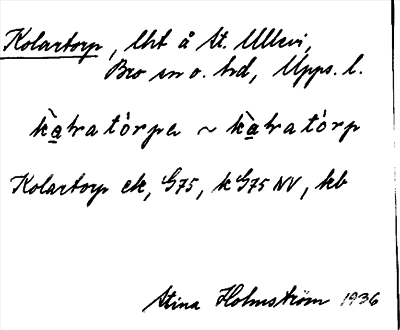 Kolartorp, lht å St. Ullevi,
Bro sn o. hd, Upps. l.
kàḷratórpa ~ kàḷratórp
Kolartorp ek, G75, kG75 NV, kb
Stina Holmström 1936